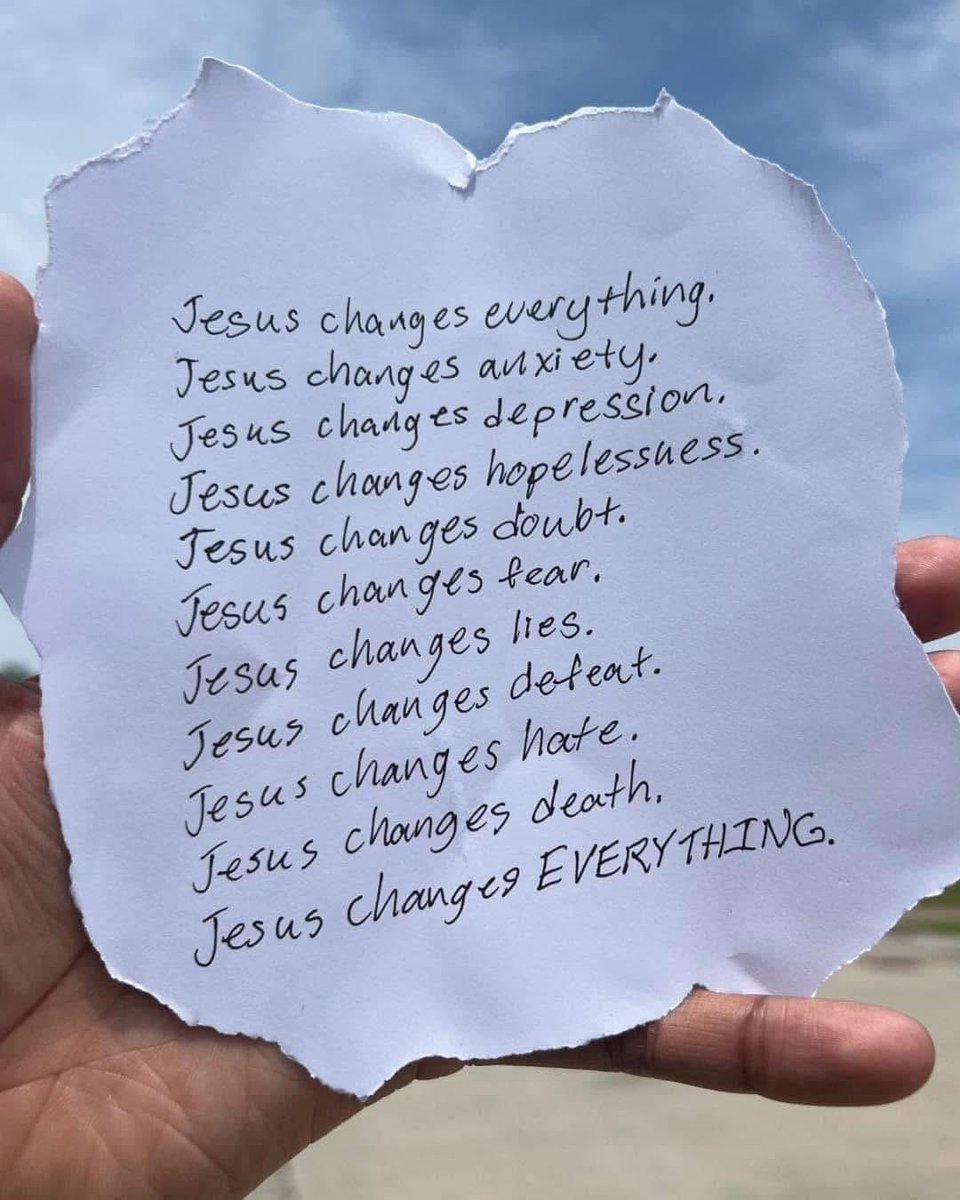 Jesus changes everything.
Jesus changes anxiety.
Jesus changes depression.
Jesus changes hopelessness.
Jesus changes doubt.
Jesus changes fear.
Jesus changes lies.
Jesus changes defeat.
Jesus changes hate.
Jesus changes death.
Jesus changes EVERYTHING.